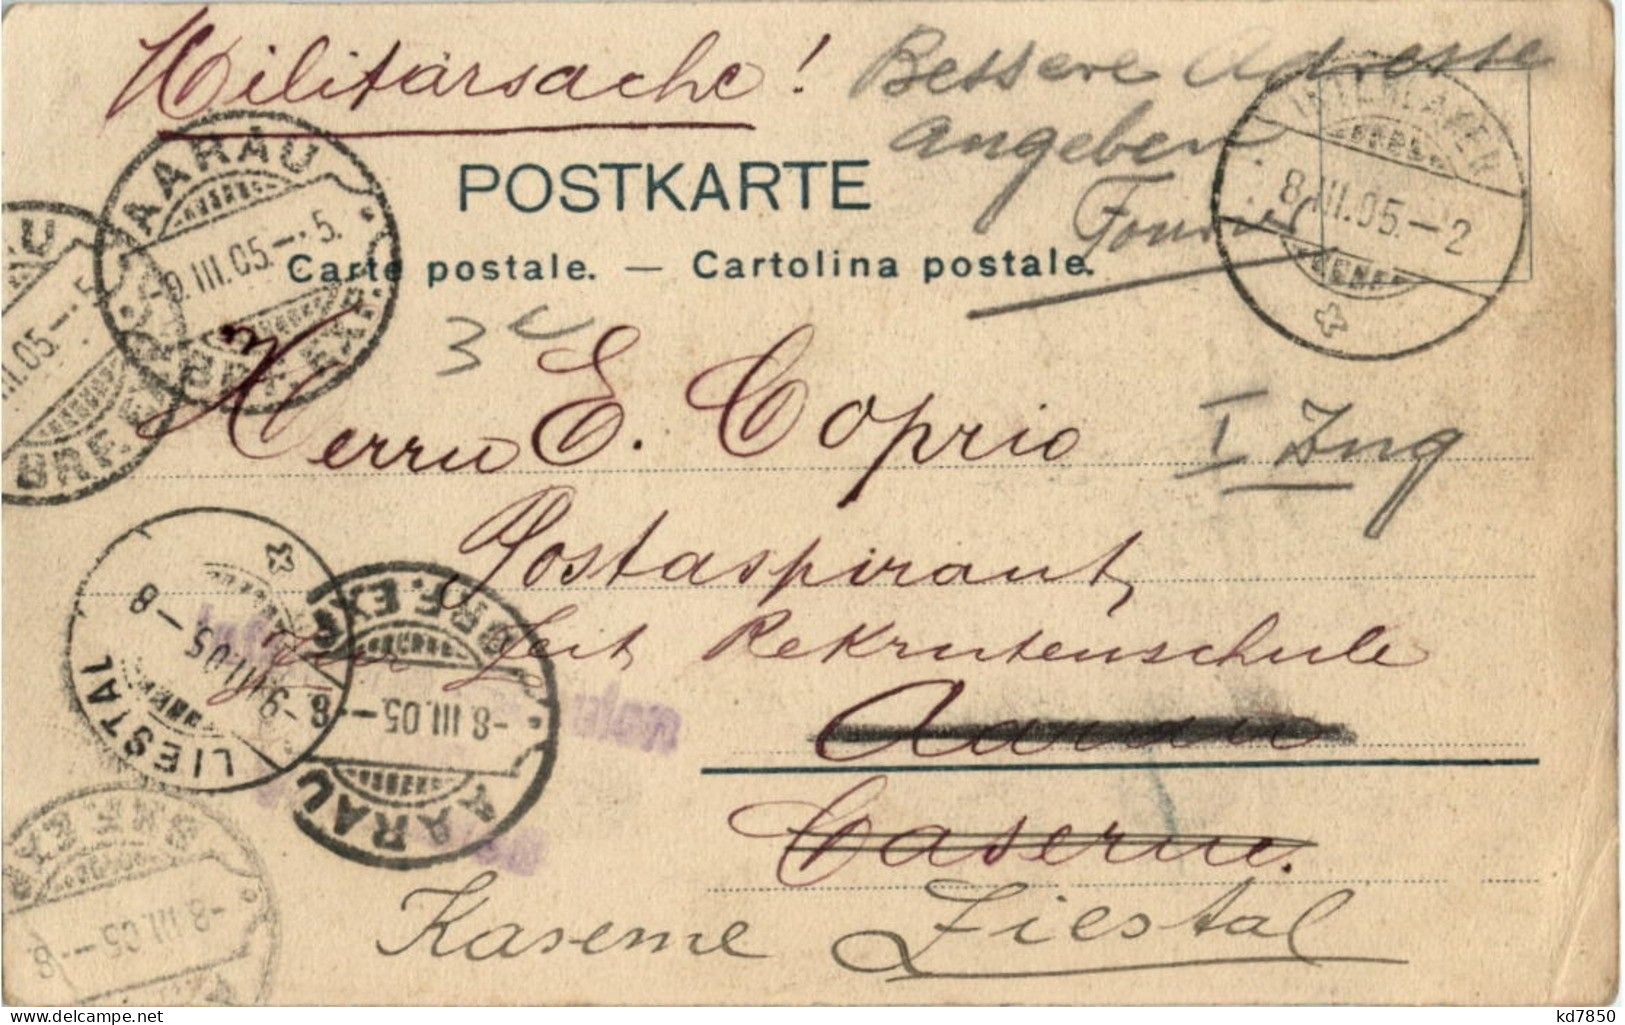 Militärsache!
Bessere Adresse
angeben.
Fourier
POSTKARTE
Carte postale. — Cartolina postale.
INTERLAKEN
8.III.05.–2
BRF. EXP.
AARAU
-9.III.05-·5.
BRF. EXP.
3
Herrn E. Coprio
I Ing
Postaspirant,
zur Zeit Rekrutenschule
Aarau
Caserne.
Kaserne Liestal
LIESTAL
-9.III.05–8
BRF. EXP.
-8.III.05-·8
AARAU
BRF. EXP.
-8.III.05-·8
delcampe.net
kd7850